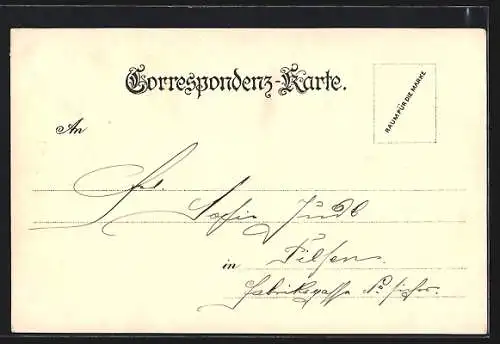 Correspondenz-Karte.
RAUM FÜR DIE MARKE
An
Frl.
Sofie Judl
in Pilsen.
Fabriksgasse No